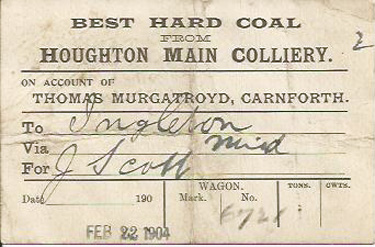 BEST HARD COAL
FROM
HOUGHTON MAIN COLLIERY.
2
ON ACCOUNT OF
THOMAS MURGATROYD, CARNFORTH.
To Ingleton
Via Mid
For J Scott
Date 190
WAGON.
Mark. No.
TONS. CWTS.
FEB 22 1904